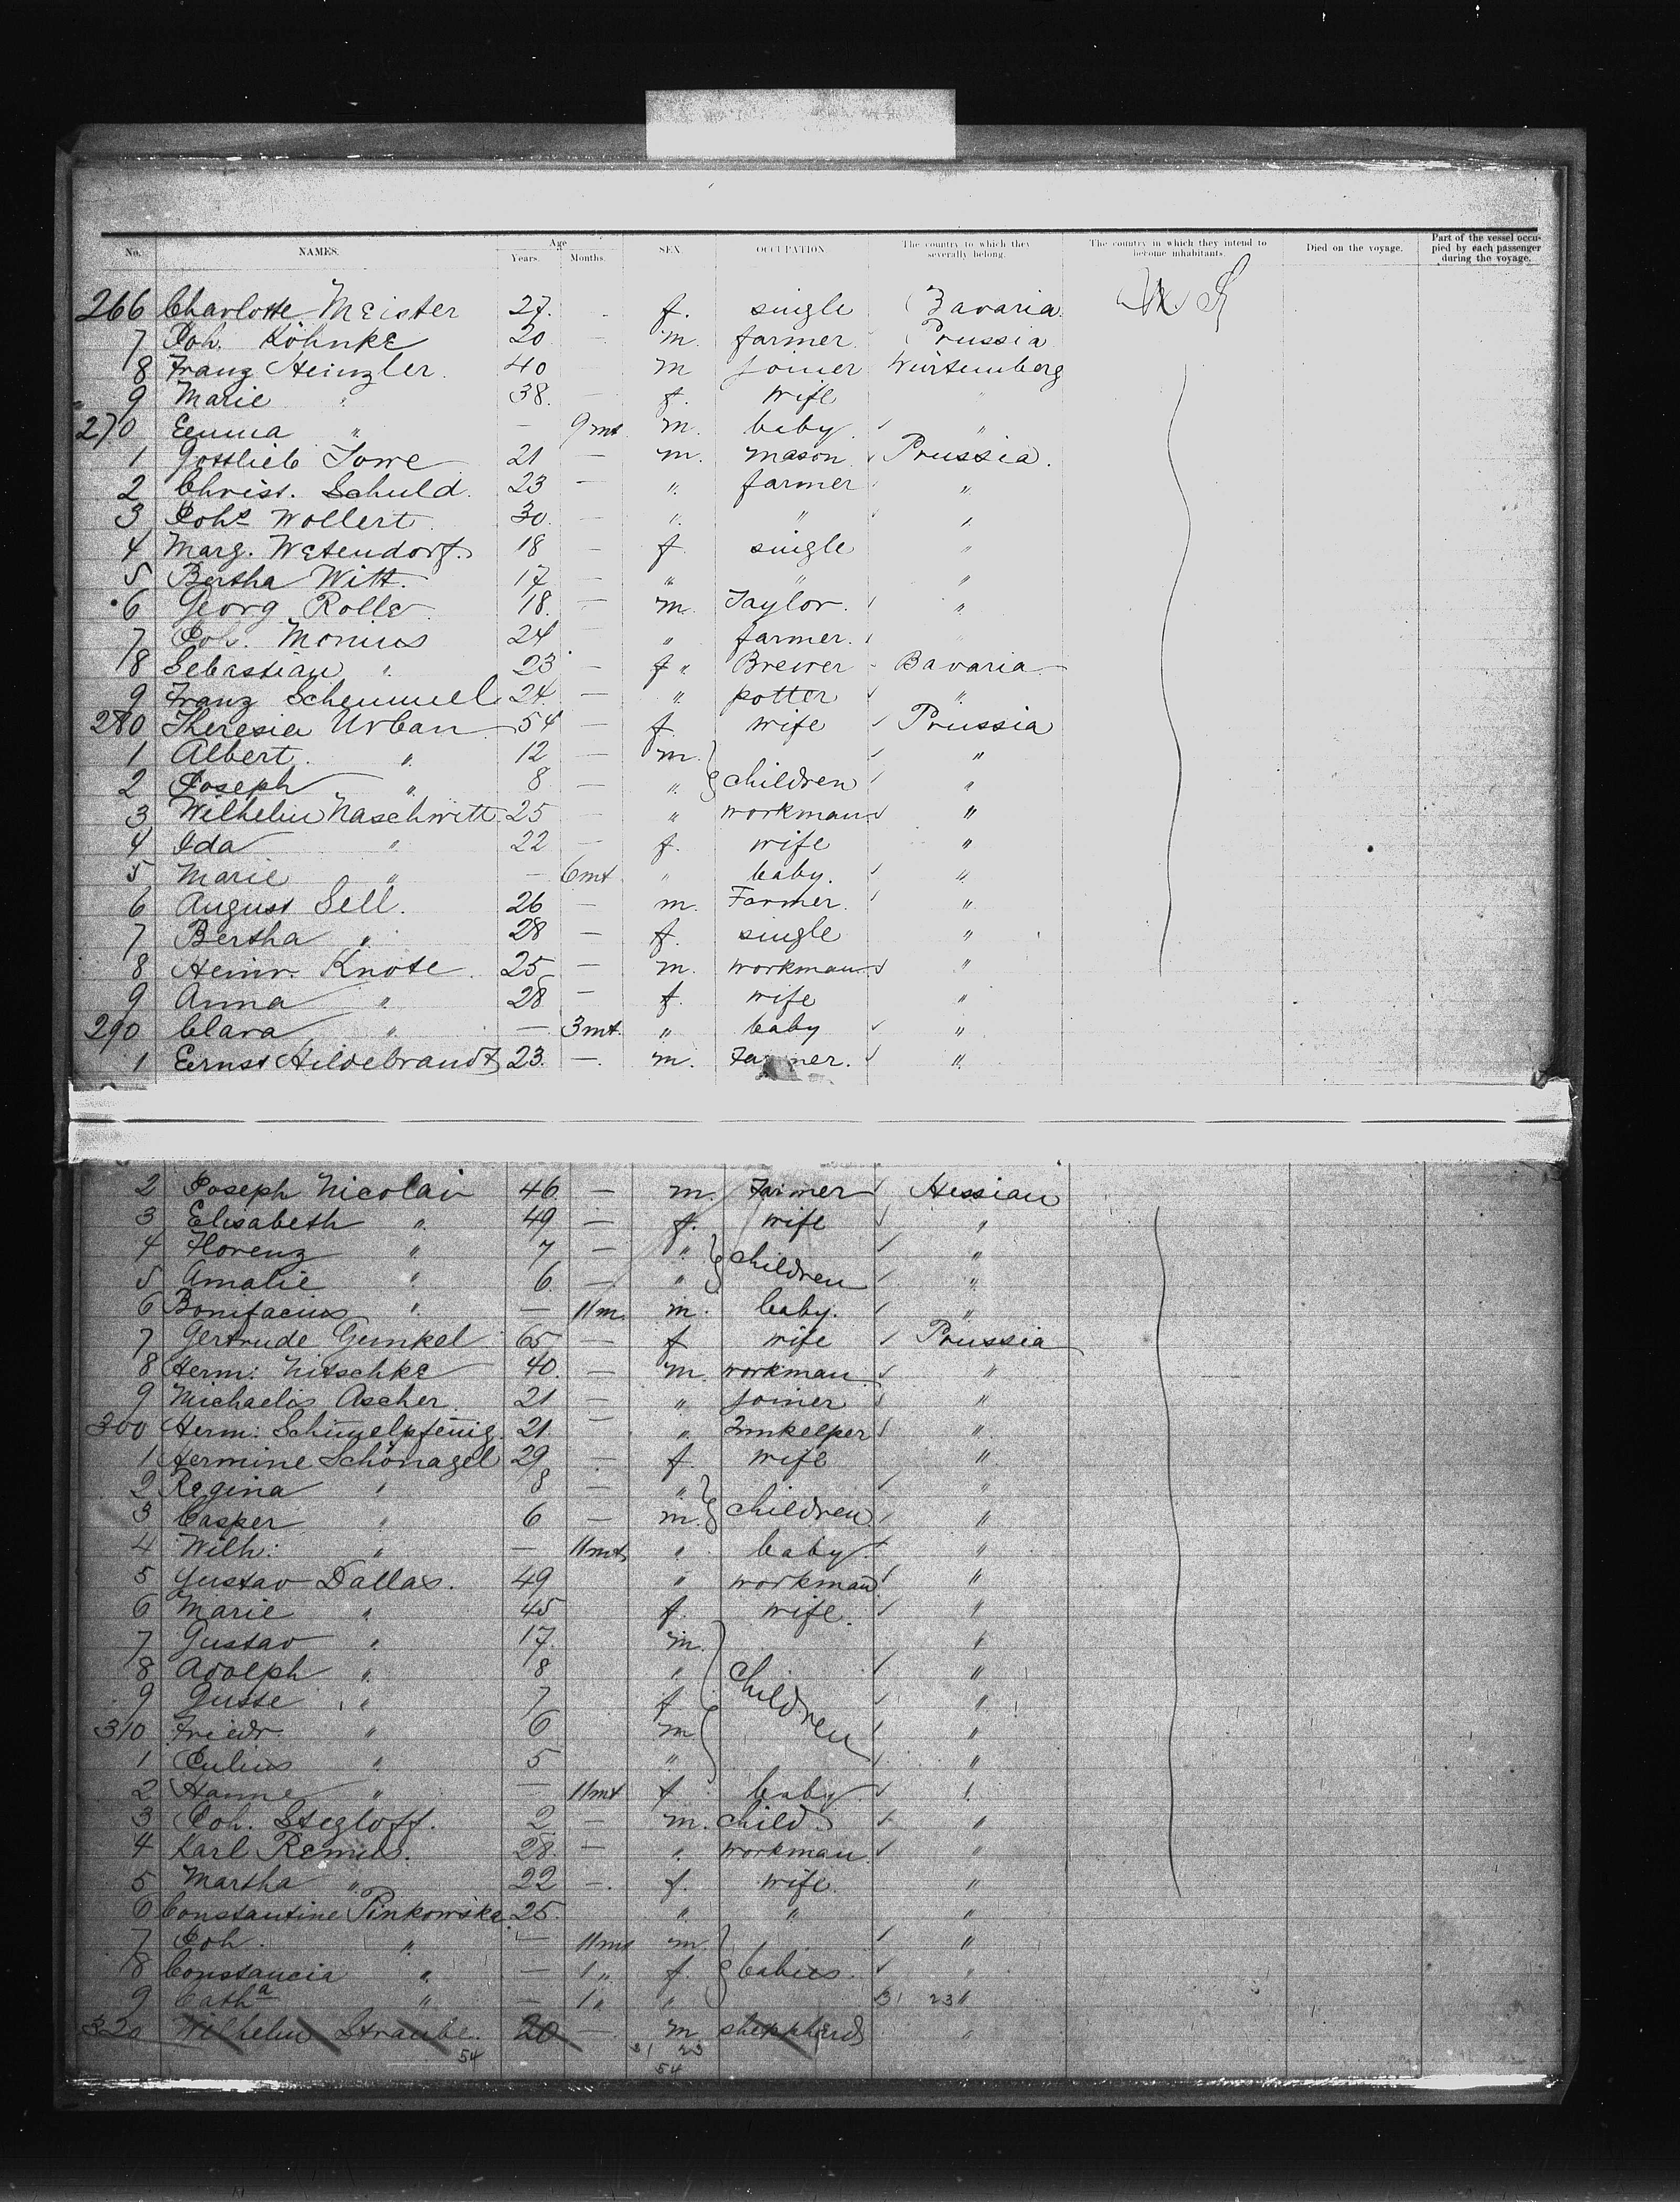 No. NAMES. Age Years. Months. SEX. OCCUPATION. The country to which they severally belong. The country in which they intend to become inhabitants. Died on the voyage. Part of the vessel occupied by each passenger during the voyage.
266 Charlotte Meister 27. f. single Bavaria
7 Joh. Köhnke 20 — m. farmer Prussia
8 Franz Heinzler 40 m joiner Würtemberg
9 Marie " 38. — f. wife "
270 Emma " — 9mt m. baby. "
1 Gottlieb 21 — m. mason Prussia.
2 Christ. Schuld. 23 — " farmer "
3 Johs Wollert 30. — " " "
4 Marg. Wetendorf. 18 — f. single "
5 Bertha Witt. 17 — " " "
6 Georg Rolle 18. — m. Taylor. "
7 Joh. Monius 24 " farmer. "
8 Sebastian " 23 — f " Brewer Bavaria
9 Franz Schemmel 24. — " potter "
280 Theresia Urban 54 — f. wife Prussia
1 Albert. " 12 — m. "
2 Joseph " 8 — " children "
3 Wilhelm Naschwitt 25 — " workman "
4 Ida " 22 — f. wife "
5 Marie " — 6mt " baby. "
6 August Sell. 26 — m. Farmer. "
7 Bertha " 28 — f. single "
8 Heinr. Knote 25 — m. workman "
9 Anna " 28 — f. wife "
290 Clara " — 3mt. " baby "
1 Eernst Hildebrandt 23. — m. Farmer. "
2 Joseph Nicolai 46 — m. Farmer Hessian
3 Elisabeth " 49 — f. wife "
4 Florenz " 7 — " children "
5 Amalie " 6. — " "
6 Bonifacius " — 11m. m. baby. "
7 Gertrude Gunkel 65 — f wife Prussia
8 Herm: Nitschke 40. — m. workman "
9 Michaelis Ascher. 21 — " joiner "
300 Herm: Schimelpfenig. 21. — " Innkeeper "
1 Hermine Schönagel 29 — f. wife "
2 Regina " 8 — " "
3 Casper " 6 — m. children "
4 Wilh: " — 11mt " baby "
5 Gustav Dallas. 49 " workman "
6 Marie " 45 f. wife "
7 Gustav " 17. m. "
8 Adolph " 8 " Children "
9 Gusse " 7 f "
310 Friedr. " 6 m "
1 Julius " 5 " "
2 Hanne " — 11mt f baby "
3 Joh. Stegloff. 2 — m. child. "
4 Karl Remus. 28. — " workman "
5 Martha " 22 — f. wife "
6 Constantine Pinkowska 25. " " "
7 Joh. " — 11mt m. "
8 Constancia " — 1 " f. babies. "
9 Catha " — 1 " " 31 23 "
320 Wilhelm Straube. 20 — m shepherd "
54 31 23
54